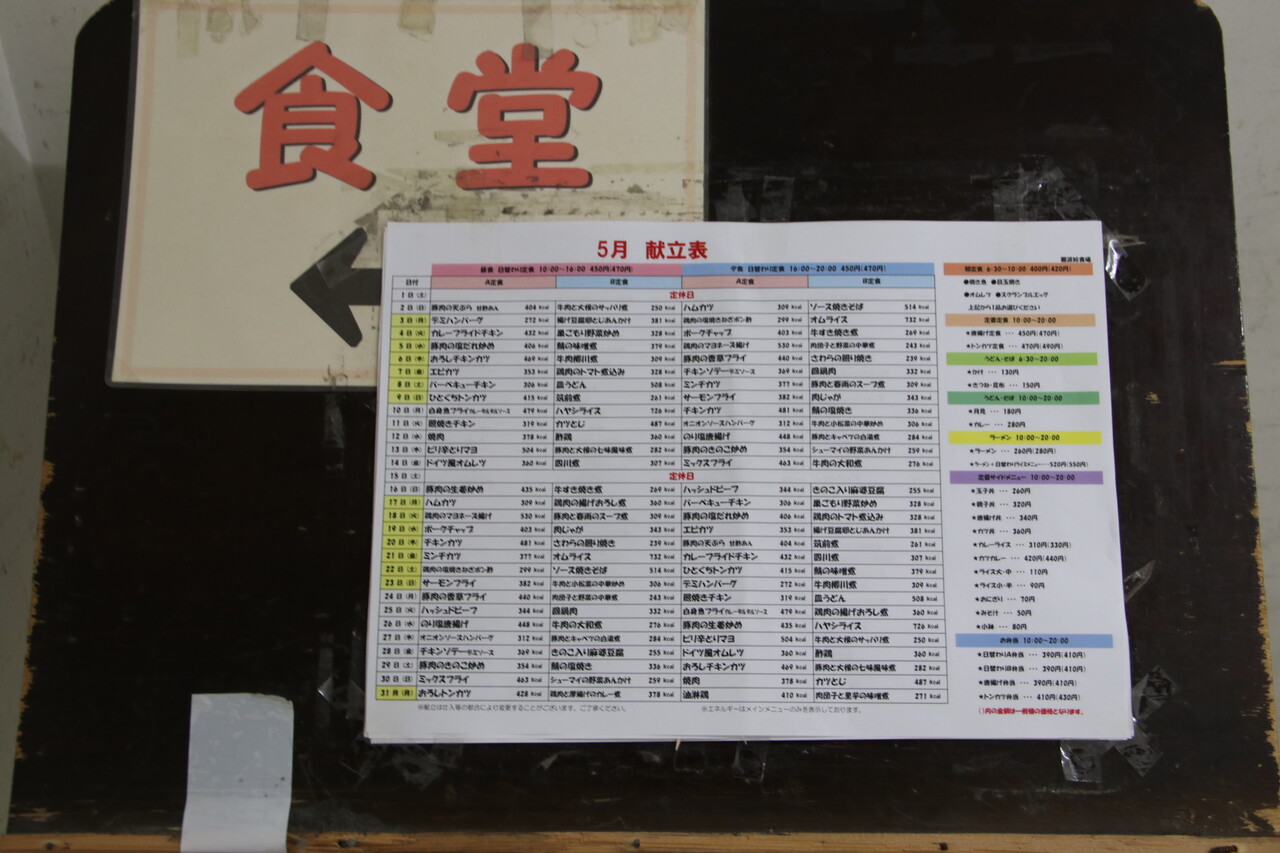 食堂
5月 献立表
昼食 日替わり定食 10:00～16:00 450円(470円) 夕食 日替わり定食 16:00～20:00 450円(470円)
日付 A定食 B定食 A定食 B定食
1日(土) 定休日
2日(日) 豚肉の天ぷら 甘酢あん 404 kcal 牛肉と大根のサッパリ煮 250 kcal ハムカツ 309 kcal ソース焼きそば 514 kcal
3日(月) デミハンバーグ 272 kcal 揚げ豆腐卵とじあんかけ 381 kcal 鶏肉の塩焼きねぎポン酢 299 kcal オムライス 732 kcal
4日(火) カレーフライドチキン 432 kcal 巣ごもり野菜炒め 328 kcal ポークチャップ 403 kcal 牛すき焼き煮 269 kcal
5日(水) 豚肉の塩だれ炒め 406 kcal 鯖の味噌煮 379 kcal 鶏肉のマヨネーズ揚げ 530 kcal 肉団子と野菜の中華煮 243 kcal
6日(木) おろしチキンカツ 469 kcal 牛肉柳川煮 309 kcal 豚肉の香草フライ 440 kcal さわらの照り焼き 239 kcal
7日(金) エビカツ 353 kcal 鶏肉のトマト煮込み 328 kcal チキンソテーデミソース 369 kcal 回鍋肉 332 kcal
8日(土) バーベキューチキン 306 kcal 皿うどん 508 kcal ミンチカツ 377 kcal 豚肉と春雨のスープ煮 309 kcal
9日(日) ひとくちトンカツ 415 kcal 筑前煮 261 kcal サーモンフライ 382 kcal 肉じゃが 343 kcal
10日(月) 白身魚フライカレータルタルソース 479 kcal ハヤシライス 726 kcal チキンカツ 481 kcal 鯖の塩焼き 336 kcal
11日(火) 照焼きチキン 319 kcal カツとじ 487 kcal オニオンソースハンバーグ 312 kcal 牛肉と小松菜の中華炒め 306 kcal
12日(水) 焼肉 378 kcal 酢鶏 360 kcal のり塩唐揚げ 448 kcal 豚肉とキャベツの白湯煮 284 kcal
13日(木) ピリ辛とりマヨ 504 kcal 豚肉と大根の七味風味煮 282 kcal 豚肉のきのこ炒め 354 kcal シューマイの野菜あんかけ 259 kcal
14日(金) ドイツ風オムレツ 360 kcal 四川煮 307 kcal ミックスフライ 463 kcal 牛肉の大和煮 276 kcal
15日(土) 定休日
16日(日) 豚肉の生姜炒め 435 kcal 牛すき焼き煮 269 kcal ハッシュドビーフ 344 kcal きのこ入り麻婆豆腐 255 kcal
17日(月) ハムカツ 309 kcal 鶏肉の揚げおろし煮 360 kcal バーベキューチキン 306 kcal 巣ごもり野菜炒め 328 kcal
18日(火) 鶏肉のマヨネーズ揚げ 530 kcal 豚肉と春雨のスープ煮 309 kcal 豚肉の塩だれ炒め 406 kcal 鶏肉のトマト煮込み 328 kcal
19日(水) ポークチャップ 403 kcal 肉じゃが 343 kcal エビカツ 353 kcal 揚げ豆腐卵とじあんかけ 381 kcal
20日(木) チキンカツ 481 kcal さわらの照り焼き 239 kcal 豚肉の天ぷら 甘酢あん 404 kcal 筑前煮 261 kcal
21日(金) ミンチカツ 377 kcal オムライス 732 kcal カレーフライドチキン 432 kcal 四川煮 307 kcal
22日(土) 鶏肉の塩焼きねぎポン酢 299 kcal ソース焼きそば 514 kcal ひとくちトンカツ 415 kcal 鯖の味噌煮 379 kcal
23日(日) サーモンフライ 382 kcal 牛肉と小松菜の中華炒め 306 kcal デミハンバーグ 272 kcal 牛肉柳川煮 309 kcal
24日(月) 豚肉の香草フライ 440 kcal 肉団子と野菜の中華煮 243 kcal 照焼きチキン 319 kcal 皿うどん 508 kcal
25日(火) ハッシュドビーフ 344 kcal 回鍋肉 332 kcal 白身魚フライカレータルタルソース 479 kcal 鶏肉の揚げおろし煮 360 kcal
26日(水) のり塩唐揚げ 448 kcal 牛肉の大和煮 276 kcal 豚肉の生姜炒め 435 kcal ハヤシライス 726 kcal
27日(木) オニオンソースハンバーグ 312 kcal 豚肉とキャベツの白湯煮 284 kcal ピリ辛とりマヨ 504 kcal 牛肉と大根のサッパリ煮 250 kcal
28日(金) チキンソテーデミソース 369 kcal きのこ入り麻婆豆腐 255 kcal ドイツ風オムレツ 360 kcal 酢鶏 360 kcal
29日(土) 豚肉のきのこ炒め 354 kcal 鯖の塩焼き 336 kcal おろしチキンカツ 469 kcal 豚肉と大根の七味風味煮 282 kcal
30日(日) ミックスフライ 463 kcal シューマイの野菜あんかけ 259 kcal 焼肉 378 kcal カツとじ 487 kcal
31日(月) おろしトンカツ 428 kcal 鶏肉と厚揚げのカレー煮 378 kcal 油淋鶏 410 kcal 肉団子と里芋の味噌煮 271 kcal
※献立は仕入等の都合により変更することがございます。ご了承ください。 ※エネルギーはメインメニューのみを表示しております。
朝定食 6:30～10:00 400円(420円)
●焼き魚 ●目玉焼き
●オムレツ ●スクランブルエッグ
上記から1品お選びください
定番定食 10:00～20:00
★唐揚げ定食 … 450円(470円)
★トンカツ定食 … 470円(490円)
うどん・そば 6:30～20:00
★かけ … 130円
★きつね・昆布 … 150円
うどん・そば 10:00～20:00
★月見 … 180円
★カレー … 280円
ラーメン 10:00～20:00
★ラーメン … 260円(280円)
★ラーメン+日替わりライスメニュー…520円(550円)
定番サイドメニュー 10:00～20:00
★玉子丼 … 260円
★親子丼 … 320円
★唐揚げ丼 … 340円
★カツ丼 … 360円
★カレーライス … 310円(330円)
★カツカレー … 420円(440円)
★ライス大・中 … 110円
★ライス小・半 … 90円
★おにぎり … 70円
★みそ汁 … 50円
★小鉢 … 80円
お弁当 10:00～20:00
★日替わりA弁当 … 390円(410円)
★日替わりB弁当 … 390円(410円)
★唐揚げ弁当 … 390円(410円)
★トンカツ弁当 … 410円(430円)
( )内の金額は一般様の価格となります。